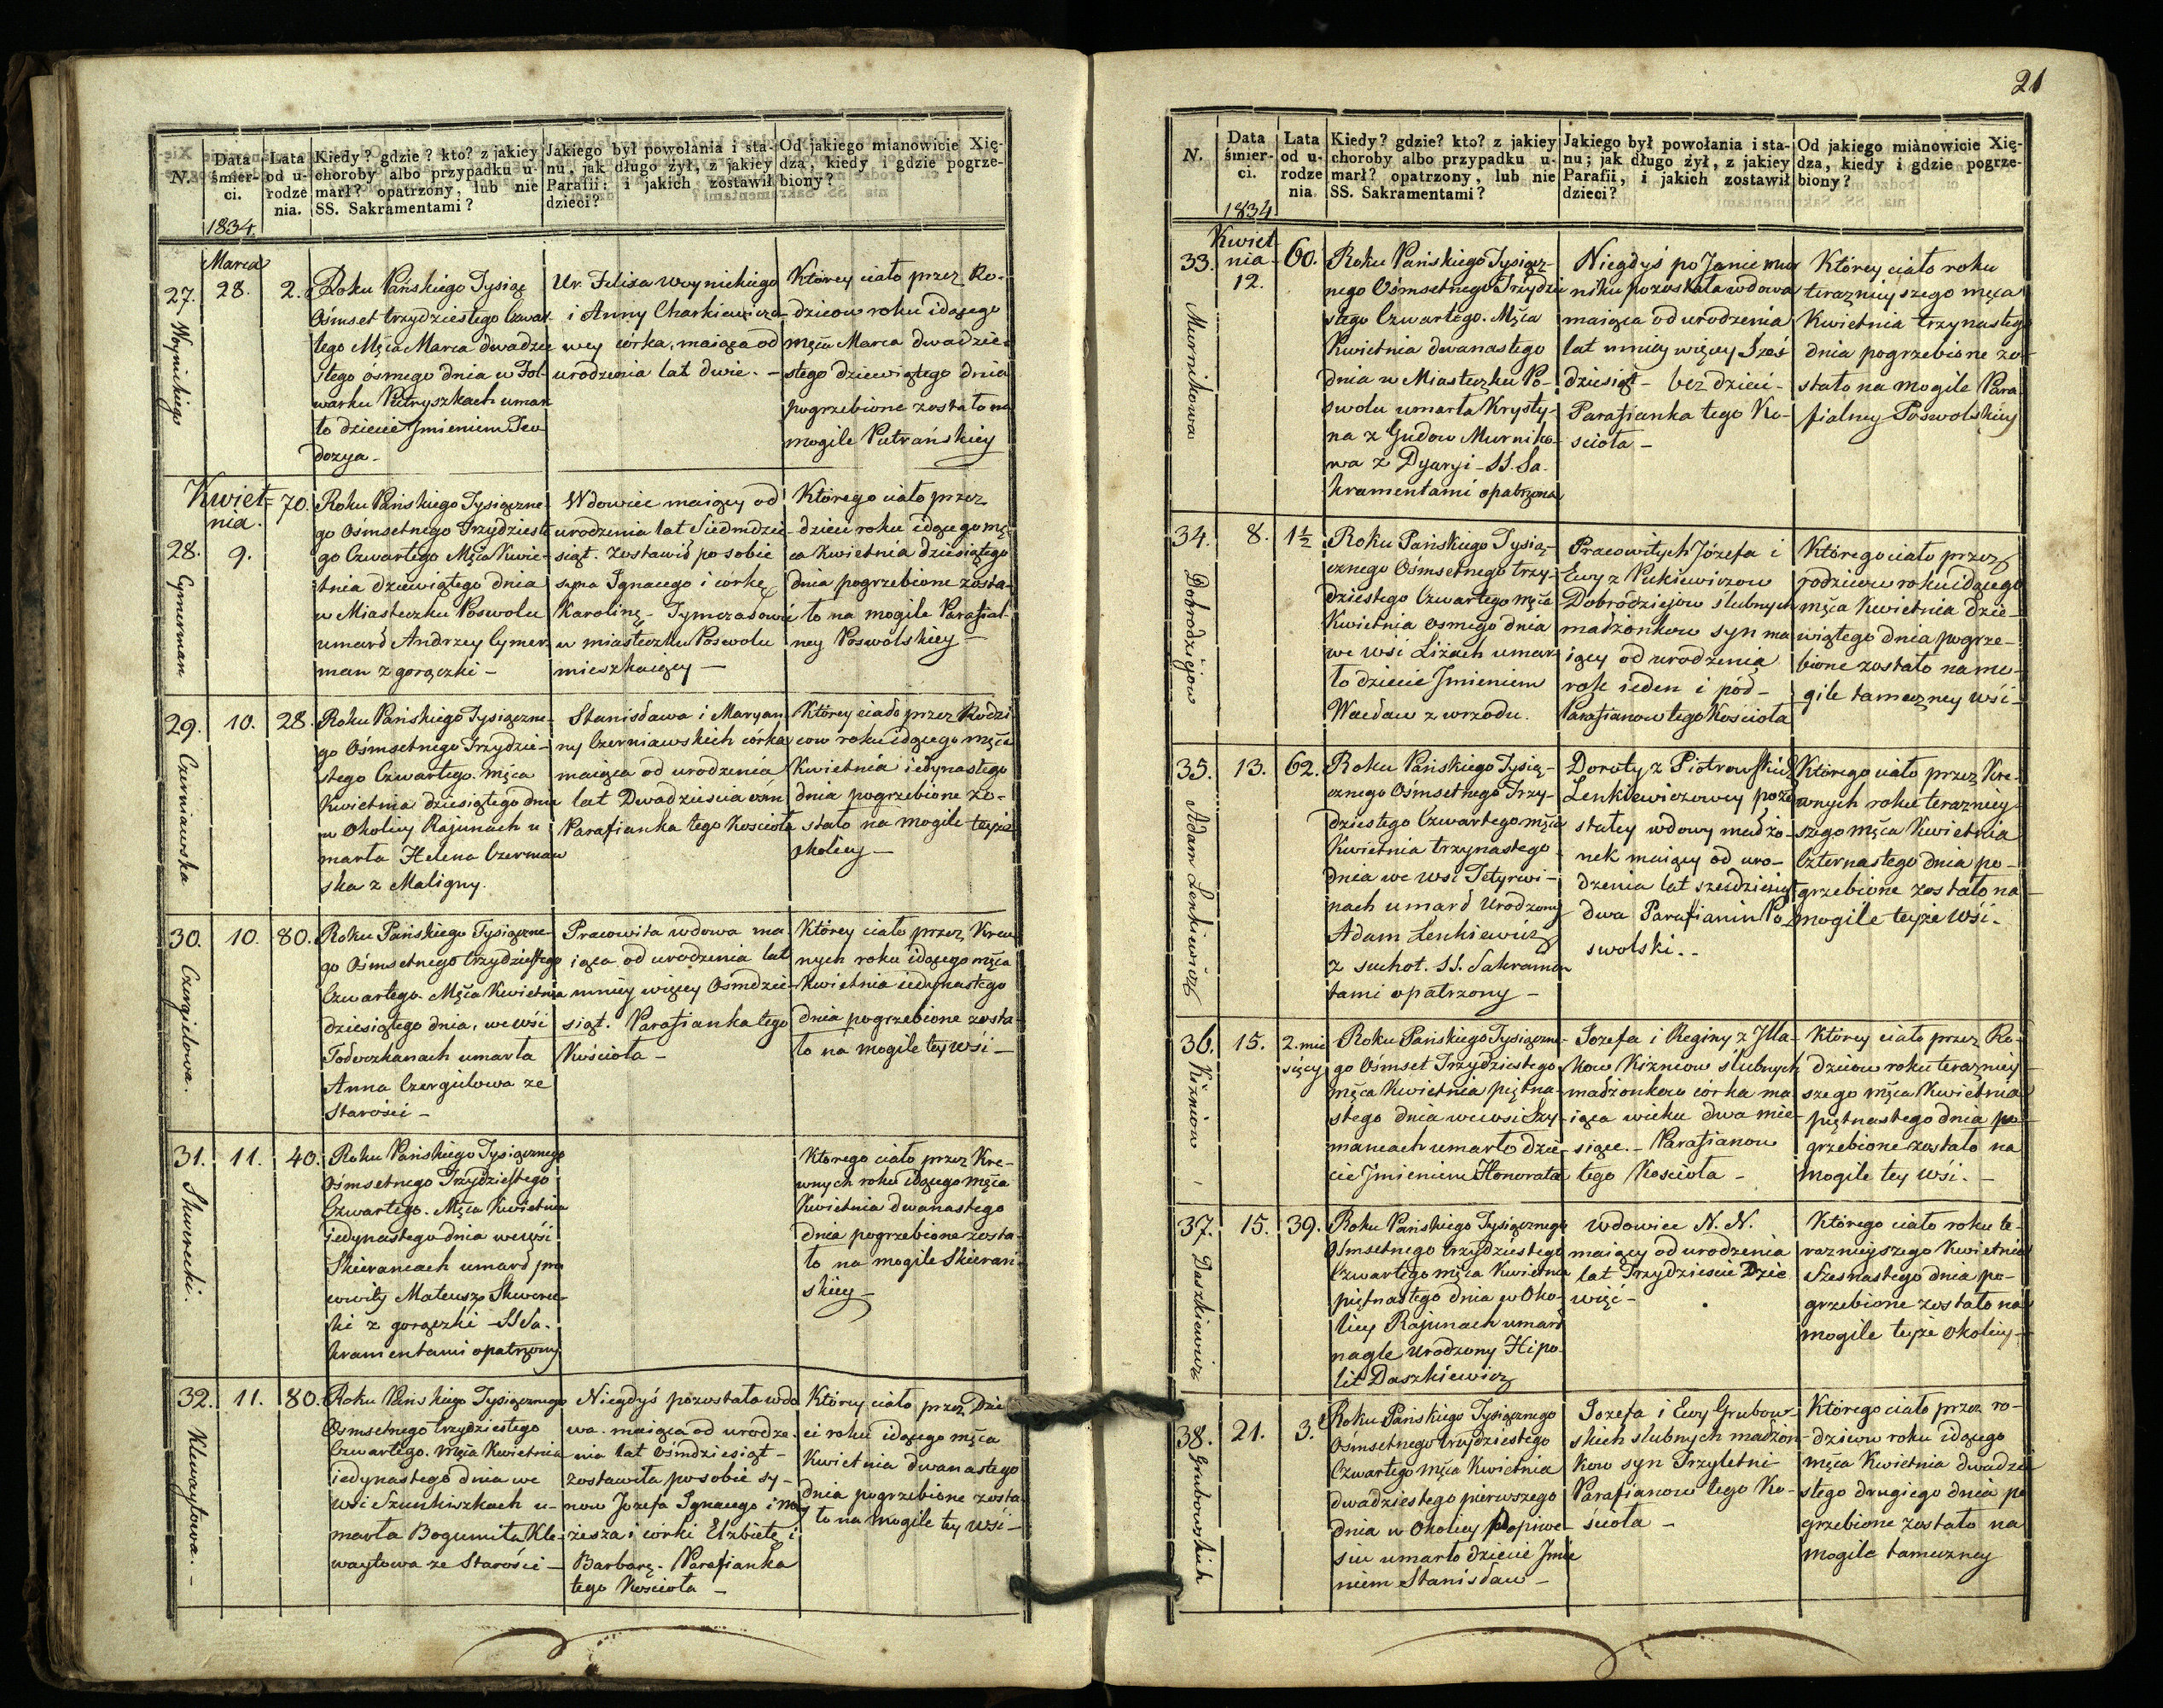 N.
Data śmier- ci.
1834
Lata od u- rodze nia.
Kiedy? gdzie? kto? z jakiey
choroby albo przypadku u-
marł? opatrzony, lub nie
SS. Sakramentami?
Jakiego był powołania i sta-
nu, jak długo żył, z jakiey
Parafii; i jakich zostawił
dzieci?
Od jakiego mianowicie Xię-
dza, kiedy i gdzie pogrze-
biony?
27. Woynickiego
Marca
28.
2.
Roku Pańskiego Tysiąc
Ośmset trzydziestego Czwar
tego Mśca Marca dwadzie
stego ósmego dnia w Fol
warku Putryszkach umar
ło dziecie Imieniem Teo
dozya -
Ur. Felixa Woynickiego
i Anny Charkiewiczo-
wey córka, maiąca od
urodzenia lat dwie. -
Którey ciało przez Ro-
dziców roku idącego
mśca Marca dwadzie-
stego dziewiątego dnia
pogrzebione zostało na
mogile Putrańskiey
Kwiet-
nia.
28. Cymerman
9.
70.
Roku Pańskiego Tysiączne-
go Ośmsetnego Trzydzieste
go Czwartego Mśca Kwie-
tnia dziewiątego dnia
w Miasteczku Poswolu
umarł Andrzey Cymer
man z gorączki -
Wdowiec maiący od
urodzenia lat Siedmdzie-
siąt. zostawił po sobie
syna Ignacego i córkę
Karolinę - Tymczasowie
w miasteczku Poswolu
mieszkaiący -
Którego ciało przez
dzieci roku idącego mś-
ca Kwietnia dziesiątego
dnia pogrzebione zosta-
ło na mogile Parafial-
ney Poswolskiey -
29. Czerniawska
10.
28.
Roku Pańskiego Tysiączne-
go Ośmsetnego Trzydzie-
stego Czwartego. mśca
Kwietnia dziesiątego dnia
w Okolicy Rajunach u
marła Helena Czerniaw
ska z Maligny.
Stanisława i Maryan
ny Czerniawskich córka
maiąca od urodzenia
lat Dwadzieścia osm
Parafianka tego Kościoła
Którey ciało przez Rodzi
ców roku idącego mśca
Kwietnia iedynastego
dnia pogrzebione zo-
stało na mogile teyże
okolicy -
30. Czergielowa.
10.
80.
Roku Pańskiego Tysiączne-
go Ośmsetnego trzydziestego
Czwartego Mśca Kwietnia
dziesiątego dnia, we wśi
umarła
Anna Czergielowa ze
Starości -
Pracowita wdowa ma
iąca od urodzenia lat
mniey więcey Ośmdzie-
siąt. Parafianka tego
Kościoła -
Którey ciało przez Krew
nych roku idącego mśca
Kwietnia iedynastego
dnia pogrzebione zosta-
ło na mogile tey wśi -
31. Skwerecki.
11.
40.
Roku Pańskiego Tysiącznego
Ośmsetnego Trzydziestego
Czwartego. Mśca Kwietnia
iedynastego dnia we wśi
Skierancach umarł pra
cowity Mateusz Skwerec-
ki z gorączki - SS Sa.
kramentami opatrzony
Którego ciało przez Kre-
wnych roku idącego mśca
Kwietnia dwanastego
dnia pogrzebione zosta-
ło na mogile Skierań-
skiey -
32. Klewaytowa. -
11.
80.
Roku Pańskiego Tysiącznego
Ośmsetnego trzydziestego
Czwartego. mśca Kwietnia
iedynastego dnia we
wśi Szunkiszkach u-
marła Bogumiła Kle-
waytowa ze Starości -
Niegdyś pozostała wdo
wa. maiąca od urodze.
nia lat ośmdziesiąt -
zostawiła po sobie sy-
nów Jozefa Ignacego i Mo
żesza i córki Elżbietę i
Barbarę. Parafianka
tego Kościoła -
Którey ciało przez Dzie
ci roku idącego mśca
Kwietnia dwanastego
dnia pogrzebione zosta
ło na mogile tey wśi -
21
N.
Data śmier- ci.
1834
Lata od u- rodze nia
Kiedy? gdzie? kto? z jakiey
choroby albo przypadku u-
marł? opatrzony, lub nie
SS. Sakramentami?
Jakiego był powołania i sta-
nu; jak długo żył, z jakiey
Parafii, i jakich zostawił
dzieci?
Od jakiego mianowicie Xię-
dza, kiedy i gdzie pogrze-
biony?
33. Murnikowa
Kwiet-
nia
12.
60.
Roku Pańskiego Tysiącz-
nego Ośmsetnego Trzydzie
stego Czwartego. Mśca
Kwietnia dwanastego
dnia w Miasteczku Po-
swolu umarła Krysty-
na z Gudow Murniko-
wa z Dyaryi - SS. Sa-
kramentami opatrzona
Niegdyś po Janie Mur
niku pozostała wdowa
maiąca od urodzenia
lat mniey więcey Sześ
dziesiąt - bez dzieci -
Parafianka tego Ko-
ścioła -
Którey ciało roku
teraznieyszego mśca
Kwietnia trzynastego
dnia pogrzebione zo-
stało na mogile Para
fialney Poswolskiey
34. Dobrodziejow
8.
1½
Roku Pańskiego Tysią-
cznego Ośmsetnego trzy-
dziestego Czwartego mśca
Kwietnia ósmego dnia
we wśi Liżach umar
ło dziecie Imieniem
Wacław z wrzodu.
Pracowitych Józefa i
Ewy z Pukiewiczow
Dobrodziejow ślubnych
małżonkow syn ma
iący od urodzenia
rok ieden i pół -
Parafianow tego Kościoła
Którego ciało przez
rodziców roku idącego
mśca Kwietnia dzie-
wiątego dnia pogrze-
bione zostało na mo-
gile tameczney wśi -
35. Adam Lenkiewicz
13.
62.
Roku Pańskiego Tysią-
cznego Ośmsetnego Trzy-
dziestego Czwartego mśca
Kwietnia trzynastego
dnia we wsi Tetyrwi-
nach umarł Urodzony
Adam Lenkiewicz
z suchot. SS. Sakramen
tami opatrzony -
Doroty z Piotrowskich
Lenkiewiczowey pozo
stałey wdowy małżo-
nek maiący od uro-
dzenia lat sześdziesiąt
dwa Parafianin Po-
swolski. -
Którego ciało przez Kre-
wnych roku terazniey
szego mśca Kwietnia
Czternastego dnia po-
grzebione zostało na
mogile teyże wśi.
36. Kiżniow
15.
2. mie
sięcy
Roku Pańskiego Tysiączne-
go Ośmset Trzydziestego
mśca Kwietnia piętna-
stego dnia we wsi Szy-
mancach umarło dzie-
cie Imieniem Honorata
Jozefa i Reginy z Illa-
kow Kiżniow ślubnych
małżonkow córka ma
iąca wieku dwa mie-
siące. - Parafianow
tego Kościoła -
Którey ciało przez Ro-
dziców roku teraznieyszego
szego mśca Kwietnia
piętnastego dnia po
grzebione zostało na
mogile tey wśi. -
37. Daszkiewicz
15.
39.
Roku Pańskiego Tysiącznego
Ośmsetnego trzydziestego
Czwartego mśca Kwietnia
piętnastego dnia w Oko-
licy Rajunach umarł
nagle Urodzony Hipo-
lit Daszkiewicz
Wdowiec N. N.
maiący od urodzenia
lat Trzydzieście Dzie
więć -
Którego ciało roku te-
raznieyszego Kwietnia
Szesnastego dnia po-
grzebione zostało na
mogile teyże okolicy -
38. Grubowskich
21.
3.
Roku Pańskiego Tysiącznego
Ośmsetnego trzydziestego
Czwartego mśca Kwietnia
dwadziestego pierwszego
dnia w Okolicy Popiwe-
siu umarło dziecie Imie
niem Stanisław -
Jozefa i Ewy Grubow-
skich ślubnych małżon-
kow syn Trzyletni
Parafianow tego Ko-
ścioła -
Którego ciało przez ro-
dziców roku idącego
mśca Kwietnia dwadzie
stego drugiego dnia po
grzebione zostało na
mogile tameczney